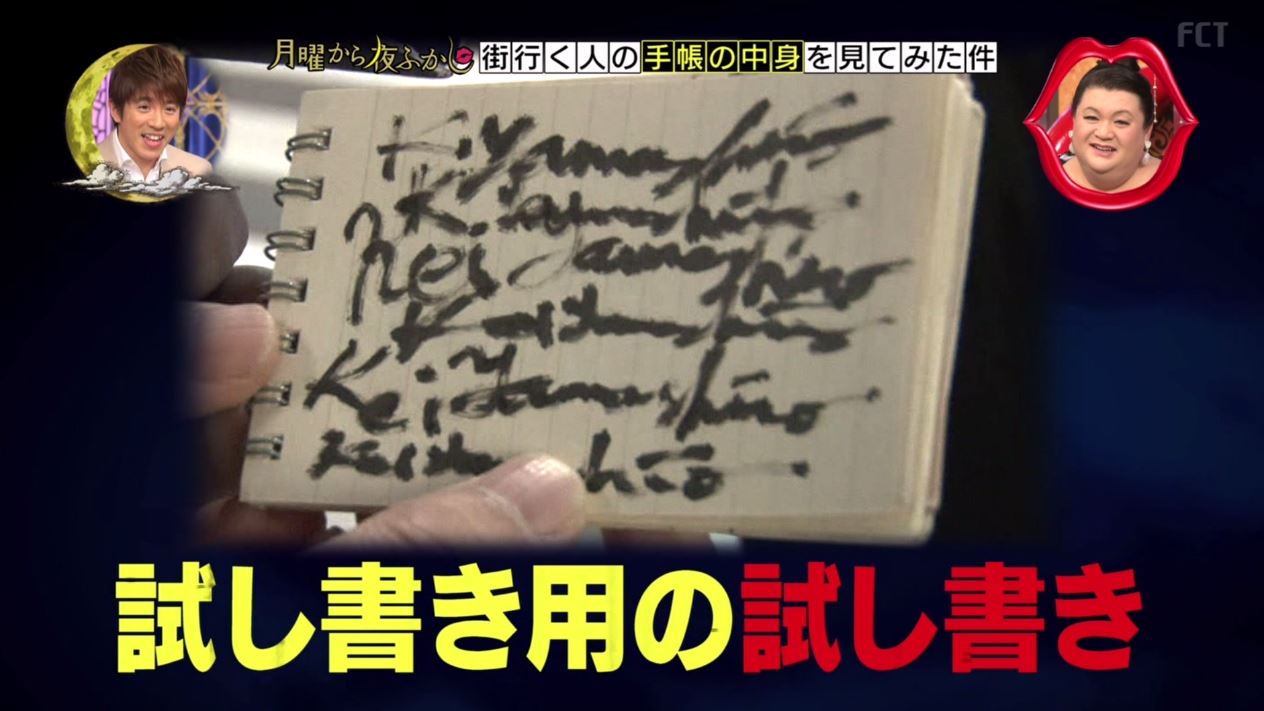 FCT
月曜から夜ふかし 街行く人の手帳の中身を見てみた件
Kiyamashiro
Kiyamashiro
Kei Yamashiro
Keiyamashiro
Kei Yamashiro
試し書き用の試し書き